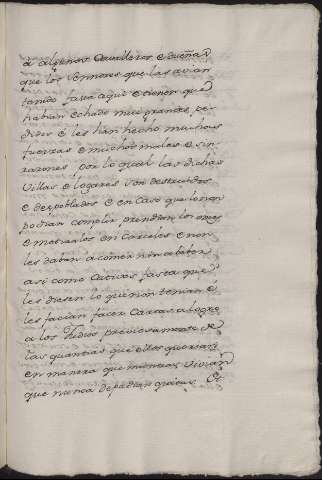 à algunos Cavalleros e dueñas
que los sennores que las avian
tenido fasta aqui e tienen que
habian echado muy grandes pe-
didos e les han hecho muchas
fuerzas e muchos males e sin
razones por lo qual las dichas
Villas e logares son destruidos
e despoblados e en caso que lo non
podian complir prendian los omes
e metianlos en Carceles e non
les daban à comer nin a beber
asi como cativos fasta que
les diesen lo que non tenian è
les facian facer Cartas a logro
a los Judios previosamente de
las quantias que ellos querian
en manera que mientras vivian
que nunca de podian quitar. Et